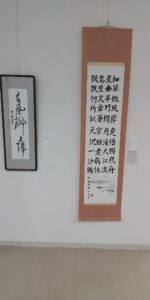 細草微風岸危檣獨夜舟
星垂平野闊月湧大江流
名豈文章著官應老病休
飄飄何所似天地一沙鷗
春風柳上歸